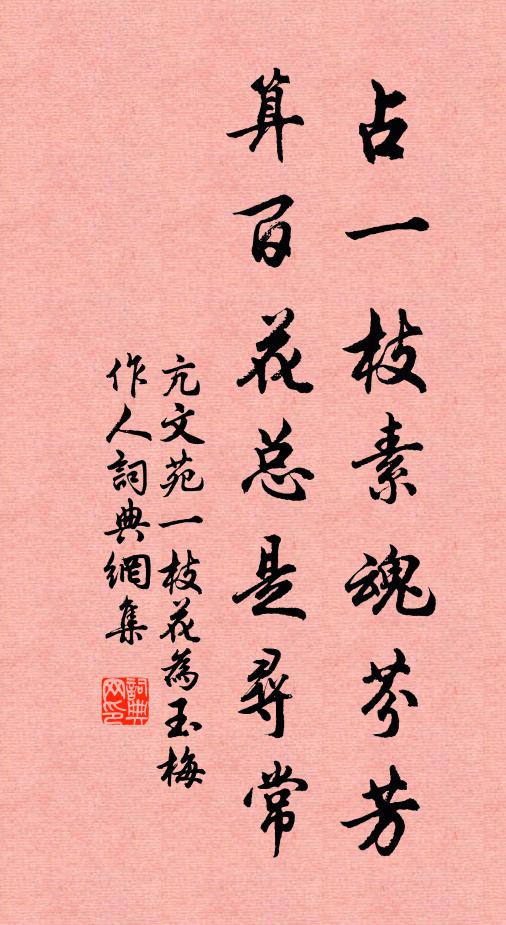 占一枝素魂芬芳
算百花总是尋常
亢文苑一枝花為玉梅
作人詞典網集
詞典
网印